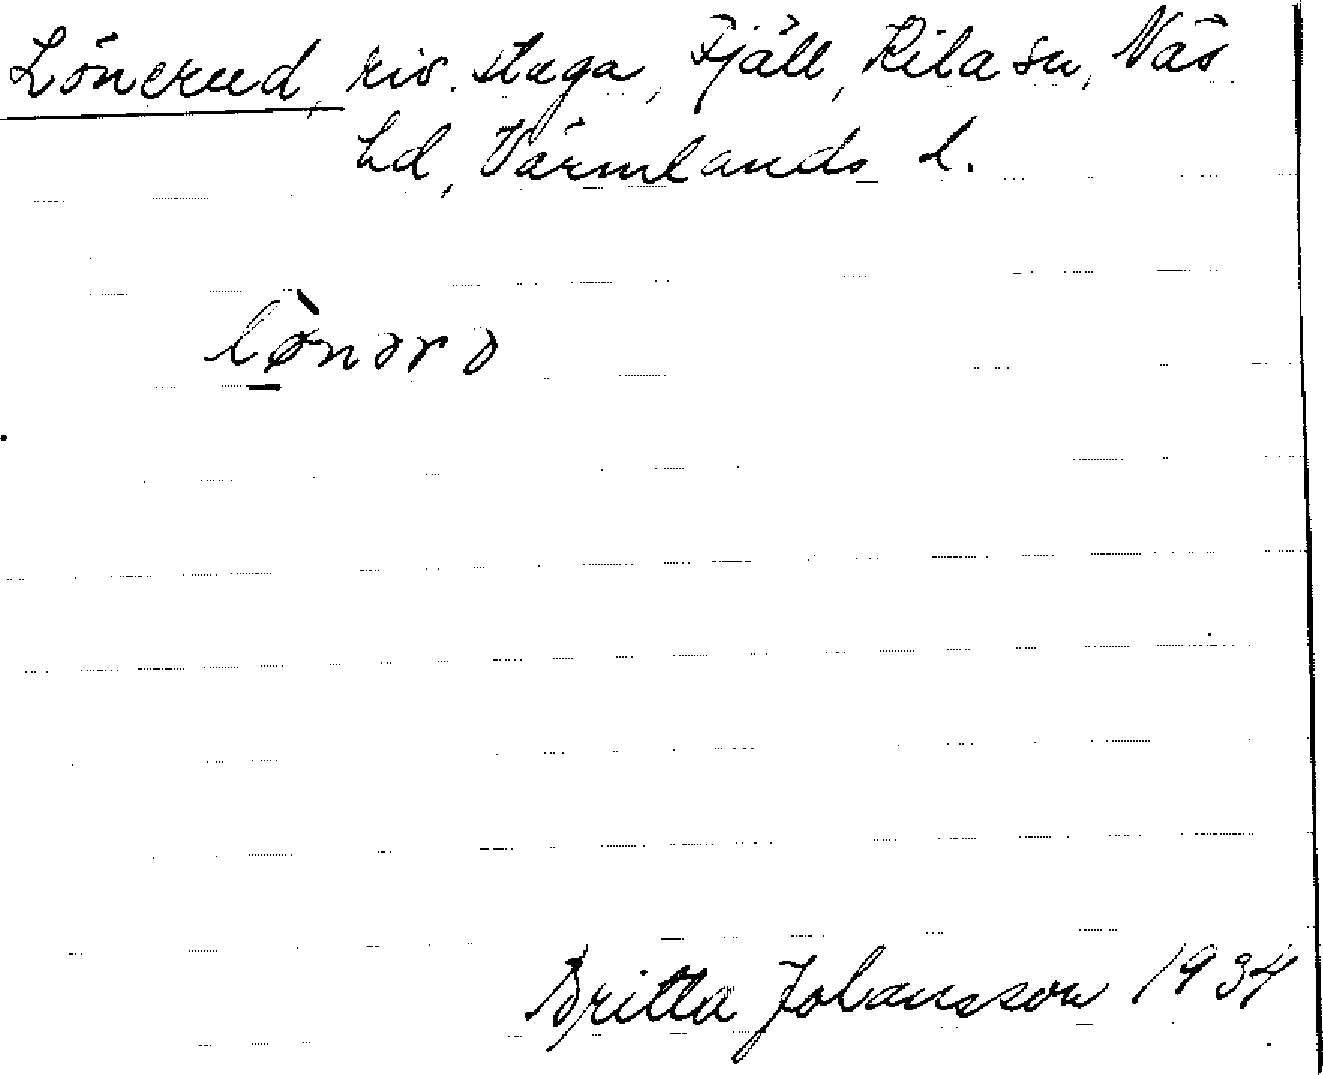 Lönerud, riv. stuga, Fjäll, Kila sn, Näs
hd, Värmlands l.
lø̀nərə
Britta Johansson 1934